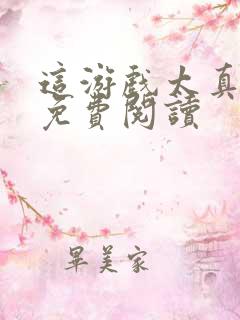 這游戲太真
免費閱讀
畢美家